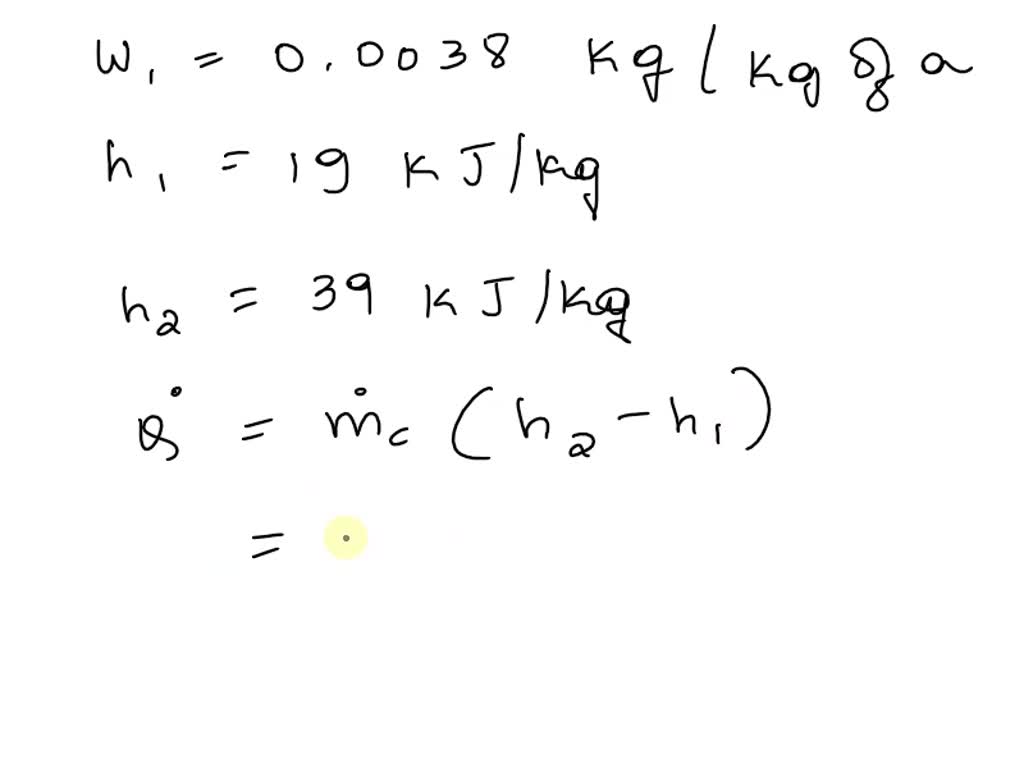 W₁ = 0.0038 kg / kg of a
h₁ = 19 kJ/kg
h₂ = 39 kJ/kg
Q̇ = ṁc (h₂ - h₁)
=